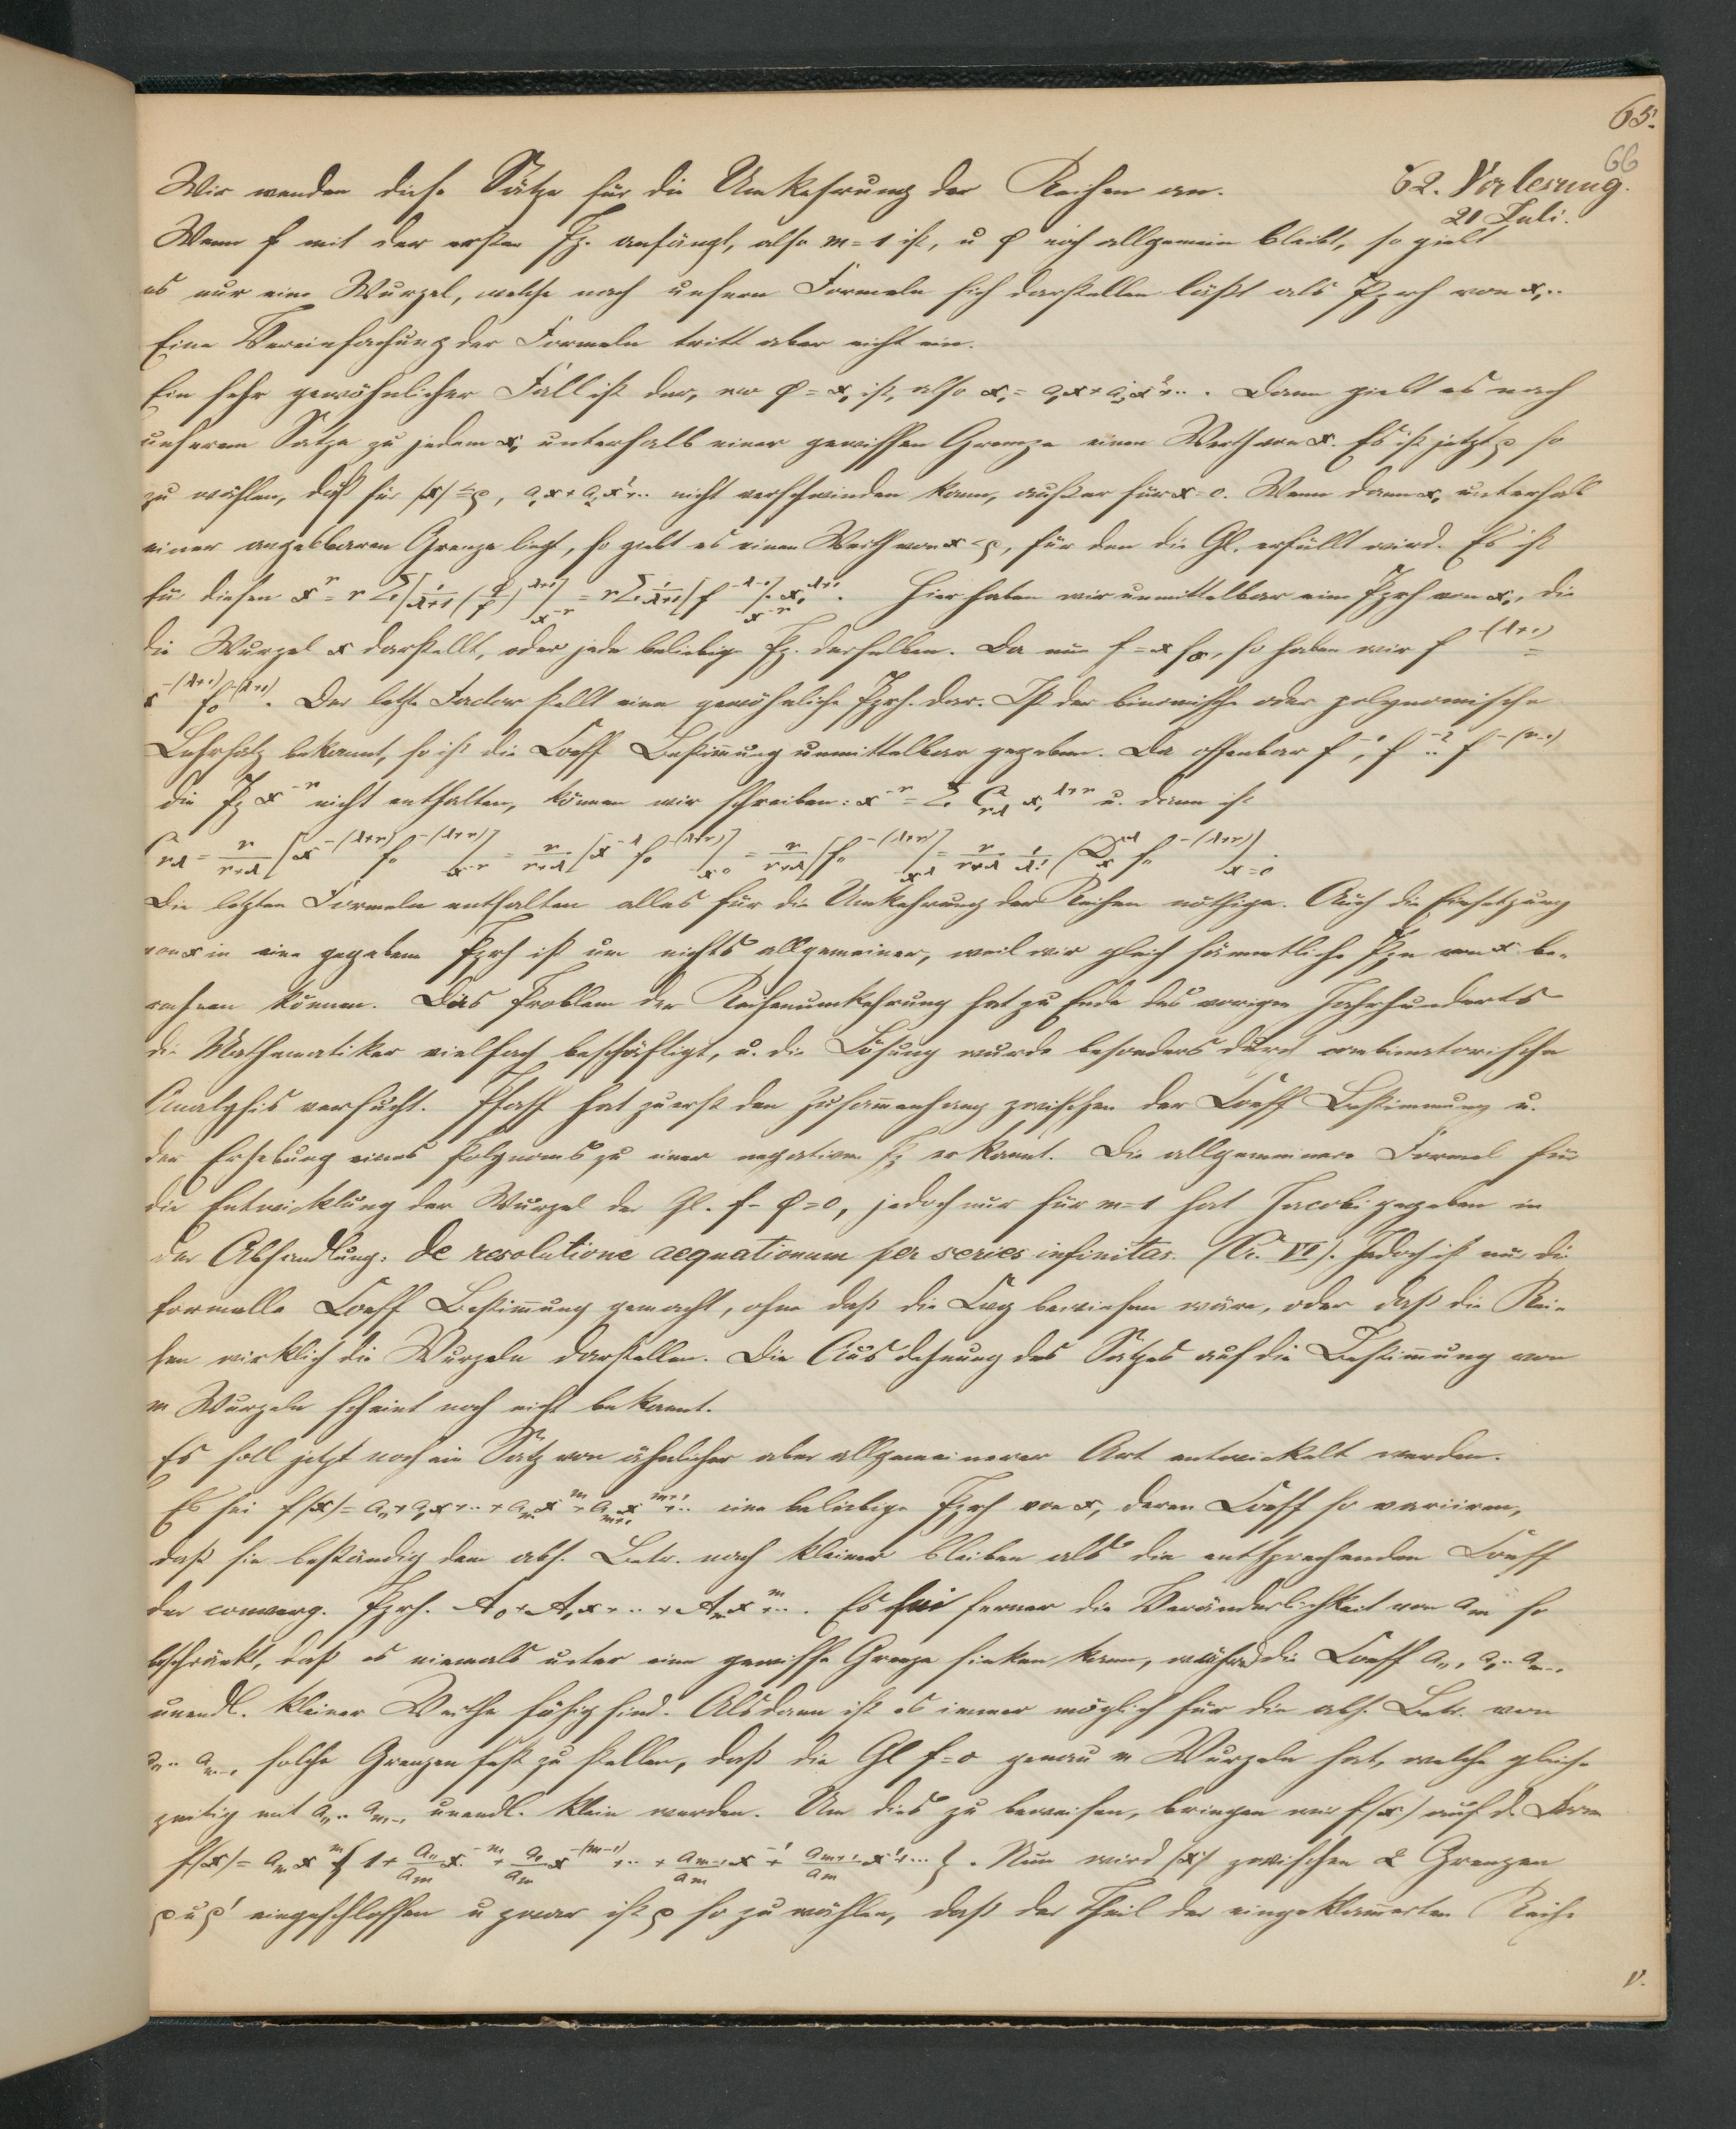 65.
66
62. Vorlesung.
21 Juli.
Wir wenden diese Sätze für die Umkehrung der Reihen an.
Wenn f mit der ersten Pz. anfängt, also m = 1 ist, u φ noch allgemein bleibt, so giebt
es nur eine Wurzel, welche nach unseren Formeln sich darstellen läßt als Pzrh von x₁..
Eine Vereinfachung der Formeln tritt aber nicht ein.
Ein sehr gewöhnlicher Fall ist der, wo φ = x₁ ist, also x₁ = a₁x + a₂x² + .. . Dann giebt es nach
unserem Satze zu jedem x₁ unterhalb einer gewissen Grenze einen Werth von x. Es ist jetzt ρ so
zu wählen, daß für |x| ≤ ρ, a₁x + a₂x² + .. nicht verschwinden kann, außer für x = 0. Wenn dann x₁ unterhalb
einer angebbaren Grenze liegt, so giebt es einen Werth von x < ρ, für den die Gl. erfüllt wird. Es ist
für diesen x^r = r Σ [1/(λ+1) (φ/f)^{λ+1}]_{x^{-r}} = r Σ 1/(λ+1) [f^{-λ-1}]_{x^{-r}} x₁^{λ+1}. Hier haben wir unmittelbar eine Pzrh von x₁, die
die Wurzel x darstellt, oder jede beliebige Pz. derselben. Da nun f = x f₀, so haben wir f^{-(λ+1)} =
x^{-(λ+1)} f₀^{-(λ+1)}. Der letzte Factor stellt eine gewöhnliche Pzrh. dar. Ist der binomische oder polynomische
Lehrsatz bekannt, so ist die Coeff Bestimmung unmittelbar gegeben. Da offenbar f^{-1}, f^{-2} .. f^{-(r-1)}
die Pz x^{-r} nicht enthalten, können wir schreiben: x^r = Σ C_{rλ} x₁^{λ+r} u. dann ist
C_{rλ} = r/(r+λ) [x^{-(λ+r)} f₀^{-(λ+r)}]_{x^{-r}} = r/(r+λ) [x^{-λ} f₀^{-(λ+r)}]_{x^0} = r/(r+λ) [f₀^{-(λ+r)}]_{x^λ} = r/(r+λ) 1/λ! (D_x^λ f₀^{-(λ+r)})_{x=0}.
Die letzten Formeln enthalten alles für die Umkehrung der Reihen nöthige. Auch die Einsetzung
von x in eine gegebene Pzrh ist um nichts allgemeiner, weil wir gleich sämmtliche Pzn von x be-
rechnen können. Das Problem der Reihenumkehrung hat zu Ende des vorigen Jahrhunderts
die Mathematiker vielfach beschäftigt, u. die Lösung wurde besonders durch combinatorische
Analysis versucht. Pfaff hat zuerst den Zusam̄enhang zwischen der Coeff Bestimmung u.
der Erhebung eines Polynoms zu einer negativen Pz erkannt. Die allgemeinere Formel für
die Entwicklung der Wurzel der Gl. f - φ = 0, jedoch nur für m = 1 hat Jacobi gegeben in
der Abhandlung: de resolutione aequationum per series infinitas. (Cr. VI). Jedoch ist nur die
formelle Coeff Bestim̄ung gemacht, ohne daß die Cvg bewiesen wäre, oder daß die Rei-
hen wirklich die Wurzeln darstellen. Die Ausdehnung des Satzes auf die Bestim̄ung von
m Wurzeln scheint noch nicht bekannt.
Es soll jetzt noch ein Satz von ähnlicher aber allgemeinerer Art entwickelt werden.
Es sei f(x) = a₀ + a₁x + .. + a_m x^m + a_{m+1} x^{m+1} + .. eine beliebige Pzrh von x, deren Coeff so variiren,
daß sie beständig dem abs. Betr. nach kleiner bleiben als die entsprechenden Coeff
der converg. Pzrh. A₀ + A₁x + .. + A_m x^m + .. . Es sei ferner die Veränderlichkeit von a_m so
beschränkt, daß es niemals unter eine gewisse Grenze sinken kann, während die Coeff a₀, a₁ .. a_{m-1}
unendl. kleiner Werthe fähig sind. Alsdann ist es immer möglich für die abs. Betr. von
a₀ .. a_{m-1} solche Grenzen fest zu stellen, daß die Gl f = 0 genau m Wurzeln hat, welche gleich-
zeitig mit a₀ .. a_{m-1} unendl. klein werden. Um dies zu beweisen, bringen wir f(x) auf d. Form
f(x) = a_m x^m { 1 + a₀/a_m x^{-m} + a₁/a_m x^{-(m-1)} + .. + a_{m-1}/a_m x^{-1} + a_{m+1}/a_m x^1 + ... }. Nun wird |x| zwischen 2 Grenzen
ρ u ρ' eingeschlossen u zwar ist ρ so zu wählen, daß der Theil der eingeklam̄erten Reihe
V.